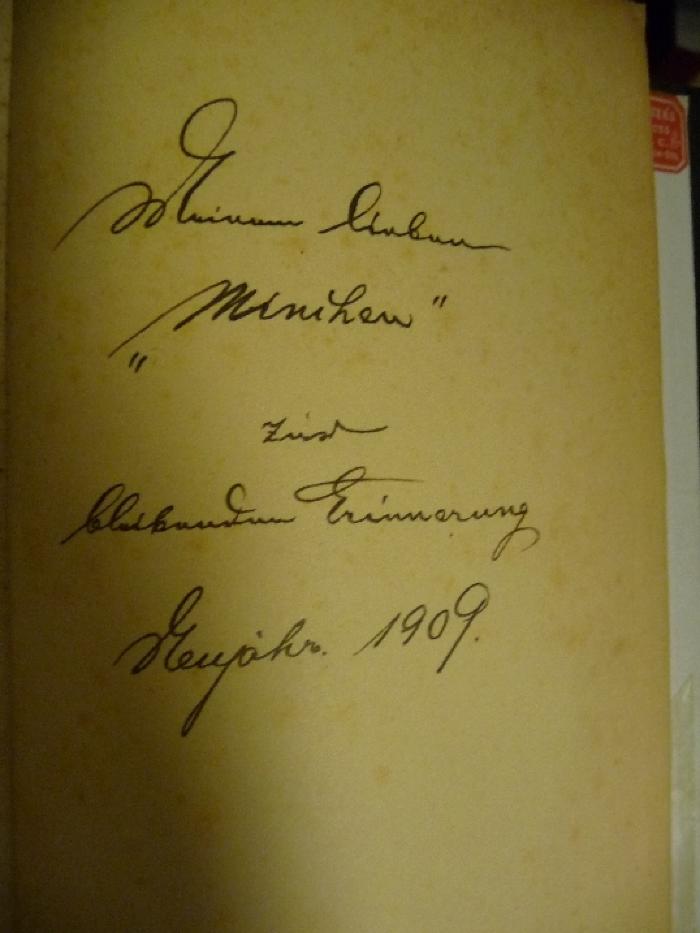 Meinem lieben
„Minchen"
zur
bleibenden Erinnerung
Neujahr. 1909.